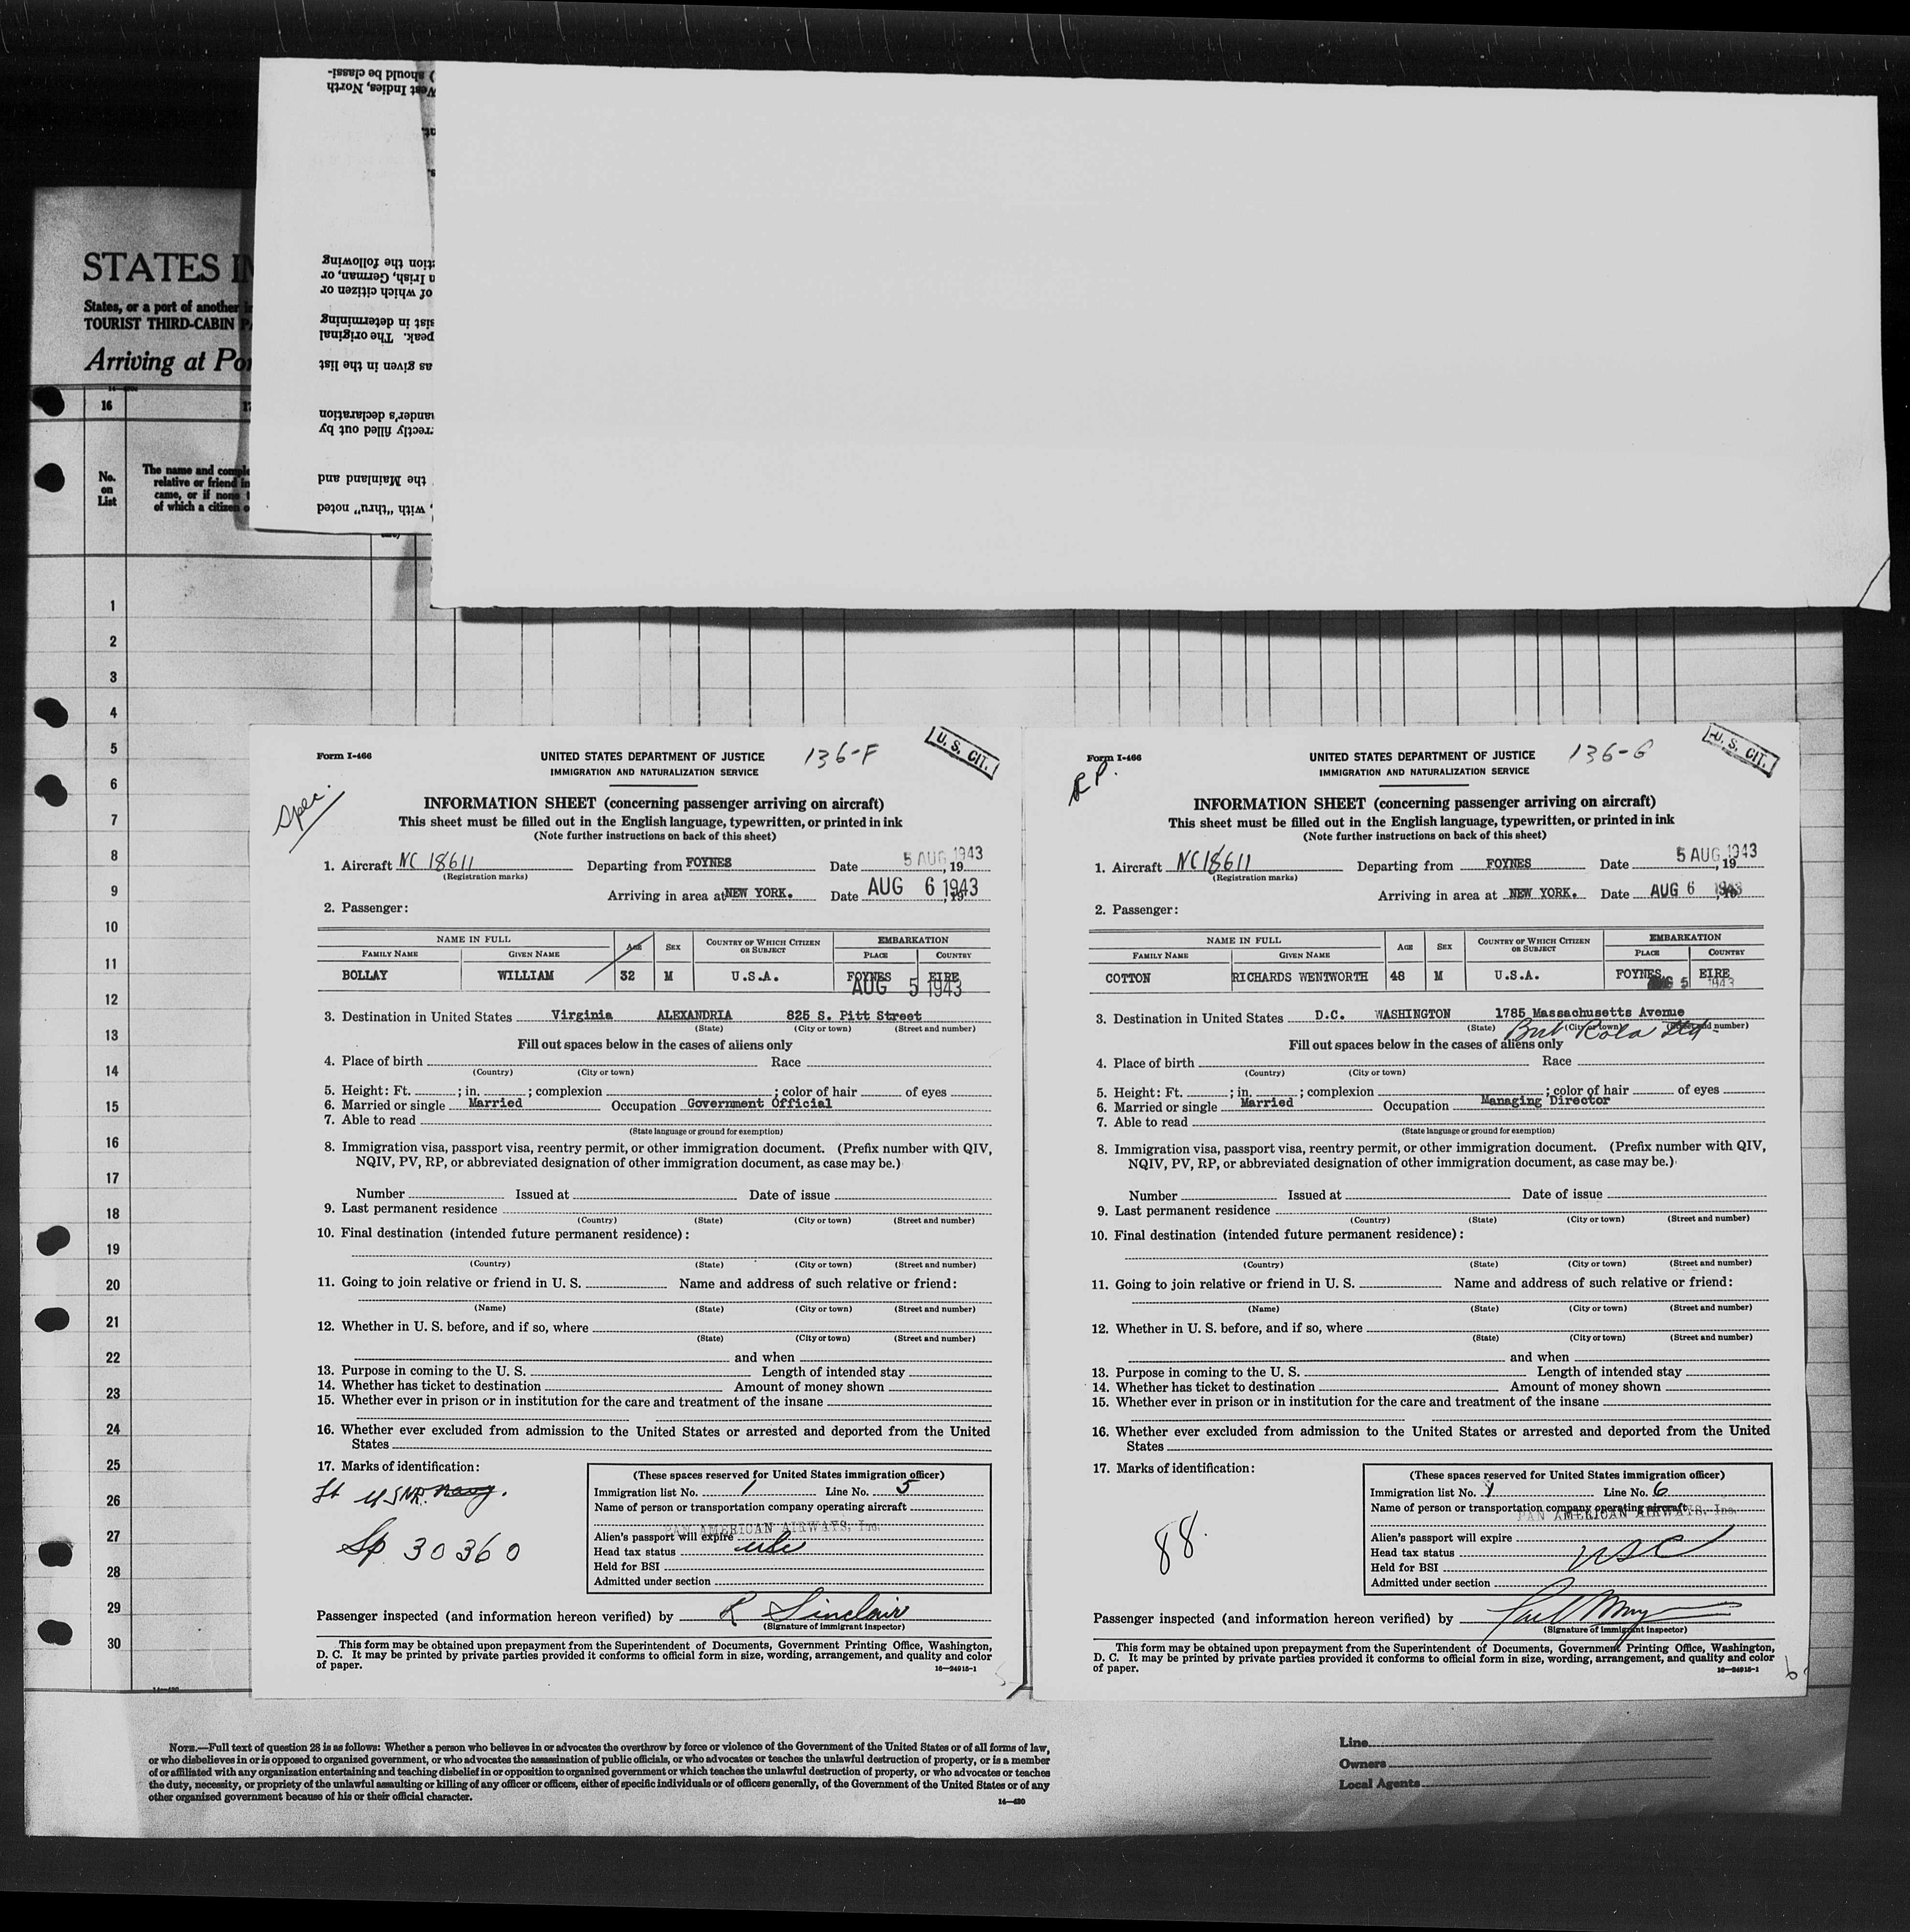 ) should be classi-
West Indies, North
tion the following
n Irish, German, or
of which citizen or
sist in determining
peak. The original
as given in the list
ander's declaration
rectly filled out by
the Mainland and
, with "thru" noted
STATES
States, or a port of another
TOURIST THIRD-CABIN
Arriving at
16
No.
on
List
The name and
relative or friend in
came, or if none
of which a citizen
1
2
3
4
5
6
7
8
9
10
11
12
13
14
15
16
17
18
19
20
21
22
23
24
25
26
27
28
29
30
Form I-466
UNITED STATES DEPARTMENT OF JUSTICE
136-F
U. S. CIT.
IMMIGRATION AND NATURALIZATION SERVICE
Spec.
INFORMATION SHEET (concerning passenger arriving on aircraft)
This sheet must be filled out in the English language, typewritten, or printed in ink
(Note further instructions on back of this sheet)
1. Aircraft NC 18611 Departing from FOYNES Date 5 AUG 1943, 19
(Registration marks)
Arriving in area at NEW YORK. Date AUG 6 1943, 19
2. Passenger:
NAME IN FULL AGE SEX COUNTRY OF WHICH CITIZEN OR SUBJECT EMBARKATION
FAMILY NAME GIVEN NAME PLACE COUNTRY
BOLLAY WILLIAM 32 M U.S.A. FOYNES EIRE
AUG 5 1943
3. Destination in United States Virginia ALEXANDRIA 825 S. Pitt Street
(State) (City or town) (Street and number)
Fill out spaces below in the cases of aliens only
4. Place of birth Race
(Country) (City or town)
5. Height: Ft. ; in. ; complexion ; color of hair of eyes
6. Married or single Married Occupation Government Official
7. Able to read
(State language or ground for exemption)
8. Immigration visa, passport visa, reentry permit, or other immigration document. (Prefix number with QIV,
NQIV, PV, RP, or abbreviated designation of other immigration document, as case may be.)
Number Issued at Date of issue
9. Last permanent residence
(Country) (State) (City or town) (Street and number)
10. Final destination (intended future permanent residence):
(Country) (State) (City or town) (Street and number)
11. Going to join relative or friend in U. S. Name and address of such relative or friend:
(Name) (State) (City or town) (Street and number)
12. Whether in U. S. before, and if so, where
(State) (City or town) (Street and number)
and when
13. Purpose in coming to the U. S. Length of intended stay
14. Whether has ticket to destination Amount of money shown
15. Whether ever in prison or in institution for the care and treatment of the insane
16. Whether ever excluded from admission to the United States or arrested and deported from the United
States
17. Marks of identification:
Lt USNR. Navy.
Sp 30360
(These spaces reserved for United States immigration officer)
Immigration list No. 1 Line No. 5
Name of person or transportation company operating aircraft
PAN AMERICAN AIRWAYS, Inc.
Alien's passport will expire
Head tax status usc
Held for BSI
Admitted under section
Passenger inspected (and information hereon verified) by R Sinclair
(Signature of immigrant inspector)
This form may be obtained upon prepayment from the Superintendent of Documents, Government Printing Office, Washington,
D. C. It may be printed by private parties provided it conforms to official form in size, wording, arrangement, and quality and color
of paper.
16—24915-1
5
Form I-466
UNITED STATES DEPARTMENT OF JUSTICE
136-G
U. S. CIT.
IMMIGRATION AND NATURALIZATION SERVICE
R P.
INFORMATION SHEET (concerning passenger arriving on aircraft)
This sheet must be filled out in the English language, typewritten, or printed in ink
(Note further instructions on back of this sheet)
1. Aircraft NC 18611 Departing from FOYNES Date 5 AUG 1943, 19
(Registration marks)
Arriving in area at NEW YORK. Date AUG 6 1943, 19
2. Passenger:
NAME IN FULL AGE SEX COUNTRY OF WHICH CITIZEN OR SUBJECT EMBARKATION
FAMILY NAME GIVEN NAME PLACE COUNTRY
COTTON RICHARDS WENTWORTH 48 M U.S.A. FOYNES EIRE
AUG 5 1943
3. Destination in United States D.C. WASHINGTON 1785 Massachusetts Avenue
(State) (City or town) (Street and number)
Brit Rola Ltd
Fill out spaces below in the cases of aliens only
4. Place of birth Race
(Country) (City or town)
5. Height: Ft. ; in. ; complexion ; color of hair of eyes
6. Married or single Married Occupation Managing Director
7. Able to read
(State language or ground for exemption)
8. Immigration visa, passport visa, reentry permit, or other immigration document. (Prefix number with QIV,
NQIV, PV, RP, or abbreviated designation of other immigration document, as case may be.)
Number Issued at Date of issue
9. Last permanent residence
(Country) (State) (City or town) (Street and number)
10. Final destination (intended future permanent residence):
(Country) (State) (City or town) (Street and number)
11. Going to join relative or friend in U. S. Name and address of such relative or friend:
(Name) (State) (City or town) (Street and number)
12. Whether in U. S. before, and if so, where
(State) (City or town) (Street and number)
and when
13. Purpose in coming to the U. S. Length of intended stay
14. Whether has ticket to destination Amount of money shown
15. Whether ever in prison or in institution for the care and treatment of the insane
16. Whether ever excluded from admission to the United States or arrested and deported from the United
States
17. Marks of identification:
88.
(These spaces reserved for United States immigration officer)
Immigration list No. 1 Line No. 6
Name of person or transportation company operating aircraft
PAN AMERICAN AIRWAYS, Inc.
Alien's passport will expire
Head tax status usc
Held for BSI
Admitted under section
Passenger inspected (and information hereon verified) by
(Signature of immigrant inspector)
This form may be obtained upon prepayment from the Superintendent of Documents, Government Printing Office, Washington,
D. C. It may be printed by private parties provided it conforms to official form in size, wording, arrangement, and quality and color
of paper.
16—24915-1
6
NOTE.—Full text of question 28 is as follows: Whether a person who believes in or advocates the overthrow by force or violence of the Government of the United States or of all forms of law,
or who disbelieves in or is opposed to organized government, or who advocates the assassination of public officials, or who advocates or teaches the unlawful destruction of property, or is a member
of or affiliated with any organization entertaining and teaching disbelief in or opposition to organized government or which teaches the unlawful destruction of property, or who advocates or teaches
the duty, necessity, or propriety of the unlawful assaulting or killing of any officer or officers, either of specific individuals or of officers generally, of the Government of the United States or of any
other organized government because of his or their official character.
14—420
Line
Owners
Local Agents